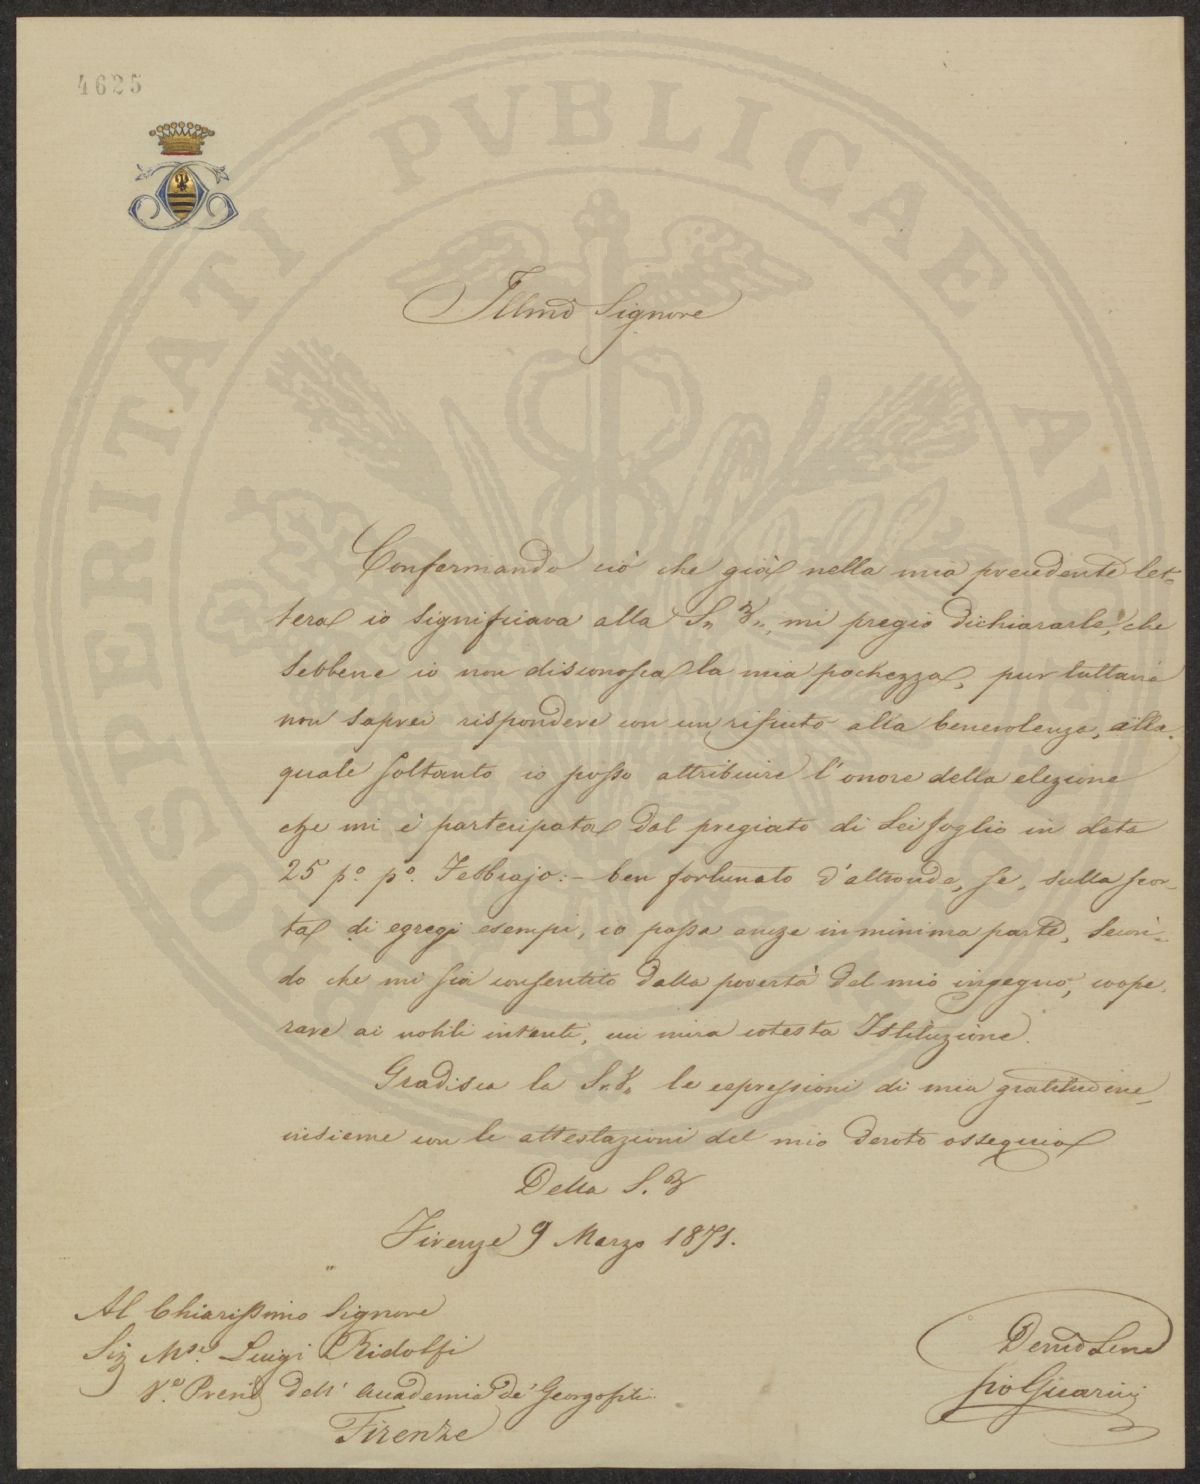 4625
PROSPERITATI PVBLICAE AVGENDAE
Illmo Signore
Confermando ciò che già nella mia precedente let-
tera io significava alla S. V., mi pregio dichiararle, che
sebbene io non disconosca la mia pochezza, pur tuttavia
non saprei rispondere con un rifiuto alla benevolenza, alla
quale soltanto io posso attribuire l'onore della elezione
che mi è partecipata dal pregiato di Lei foglio in data
25 p.º p.º Febbrajo: - ben fortunato d'altronde, se, sulla scor-
ta di egregi esempi, io possa anche in minima parte, secon-
do che mi sia consentito dalla povertà del mio ingegno, coope-
rare ai nobili intenti, cui mira cotesta Istituzione.
Gradisca la S. V. le espressioni di mia gratitudine
insieme con le attestazioni del mio devoto ossequio
Della S. V.
Firenze 9 Marzo 1871.
Al Chiarissimo Signore
Sig. Mse. Luigi Ridolfi
V.e Presid. dell' Accademia de' Georgofili
Firenze
Devmo Serve
Pio Guarini